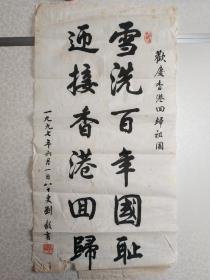 歡慶香港回歸祖國
雪洗百年國耻
迎接香港回歸
一九九七年六月一日八十叟劉
書